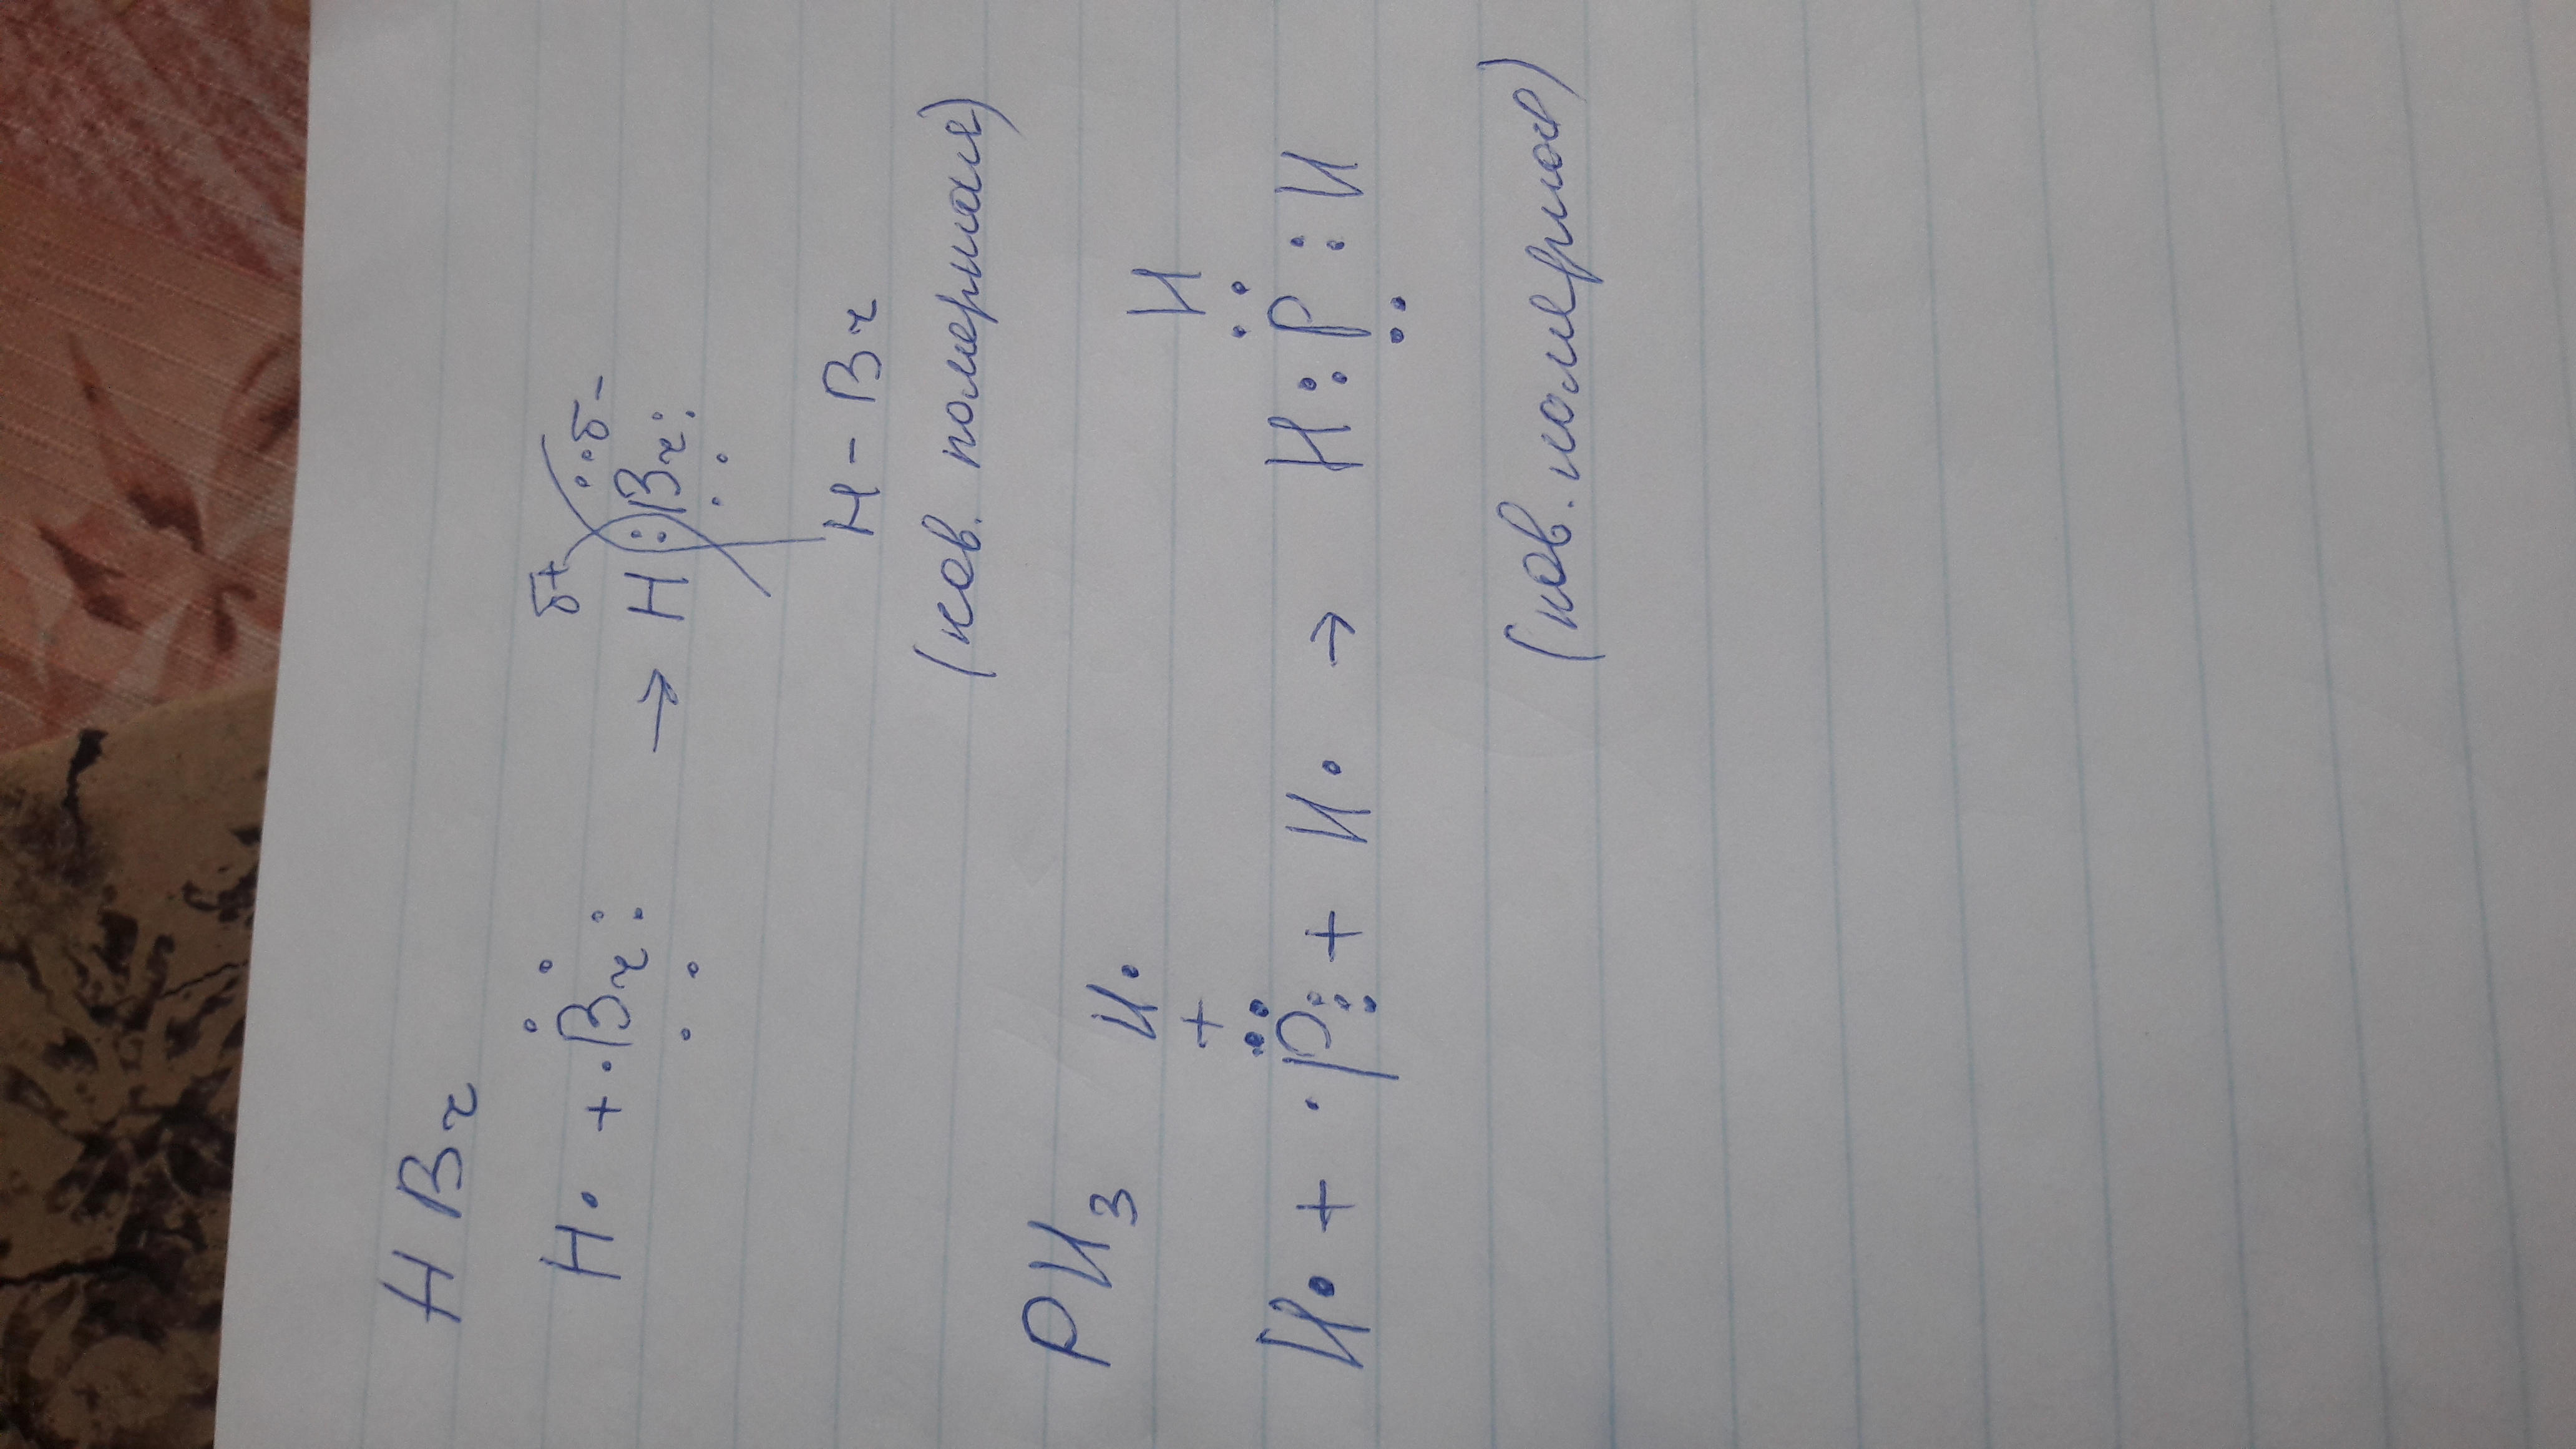 HBr
H· + ·Br: → H(:)Br:
δ+ δ-
H-Br
(ков. полярная)
PH₃
H·
+
H· + ·P: + H· → H:P:H
H
(ков. полярная)